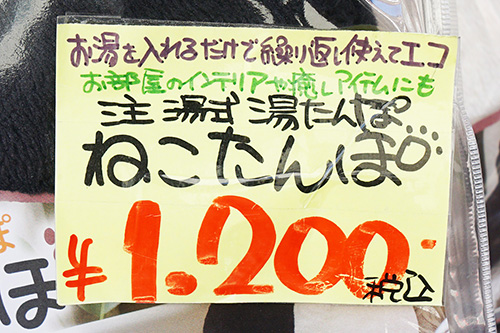 お湯を入れるだけで繰り返し使えてエコ
お部屋のインテリアや癒しアイテムにも
注湯式 湯たんぽ
ねこたんぽ
¥1.200-
税込
ぽ
ぽ